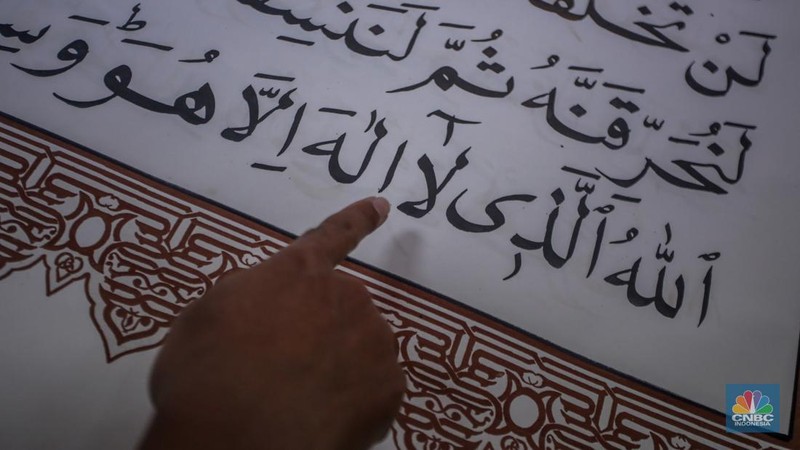 لَنْ تُخْلَفَ
لَنُحَرِّقَنَّهُ ثُمَّ لَنَنْسِفَ
اللّٰهُ الَّذِي لَا اِلٰهَ اِلَّا هُوَ وَسِ
CNBC
INDONESIA